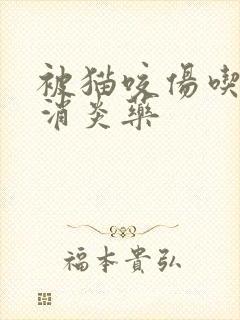 被猫咬傷喫
消炎藥
福本貴弘